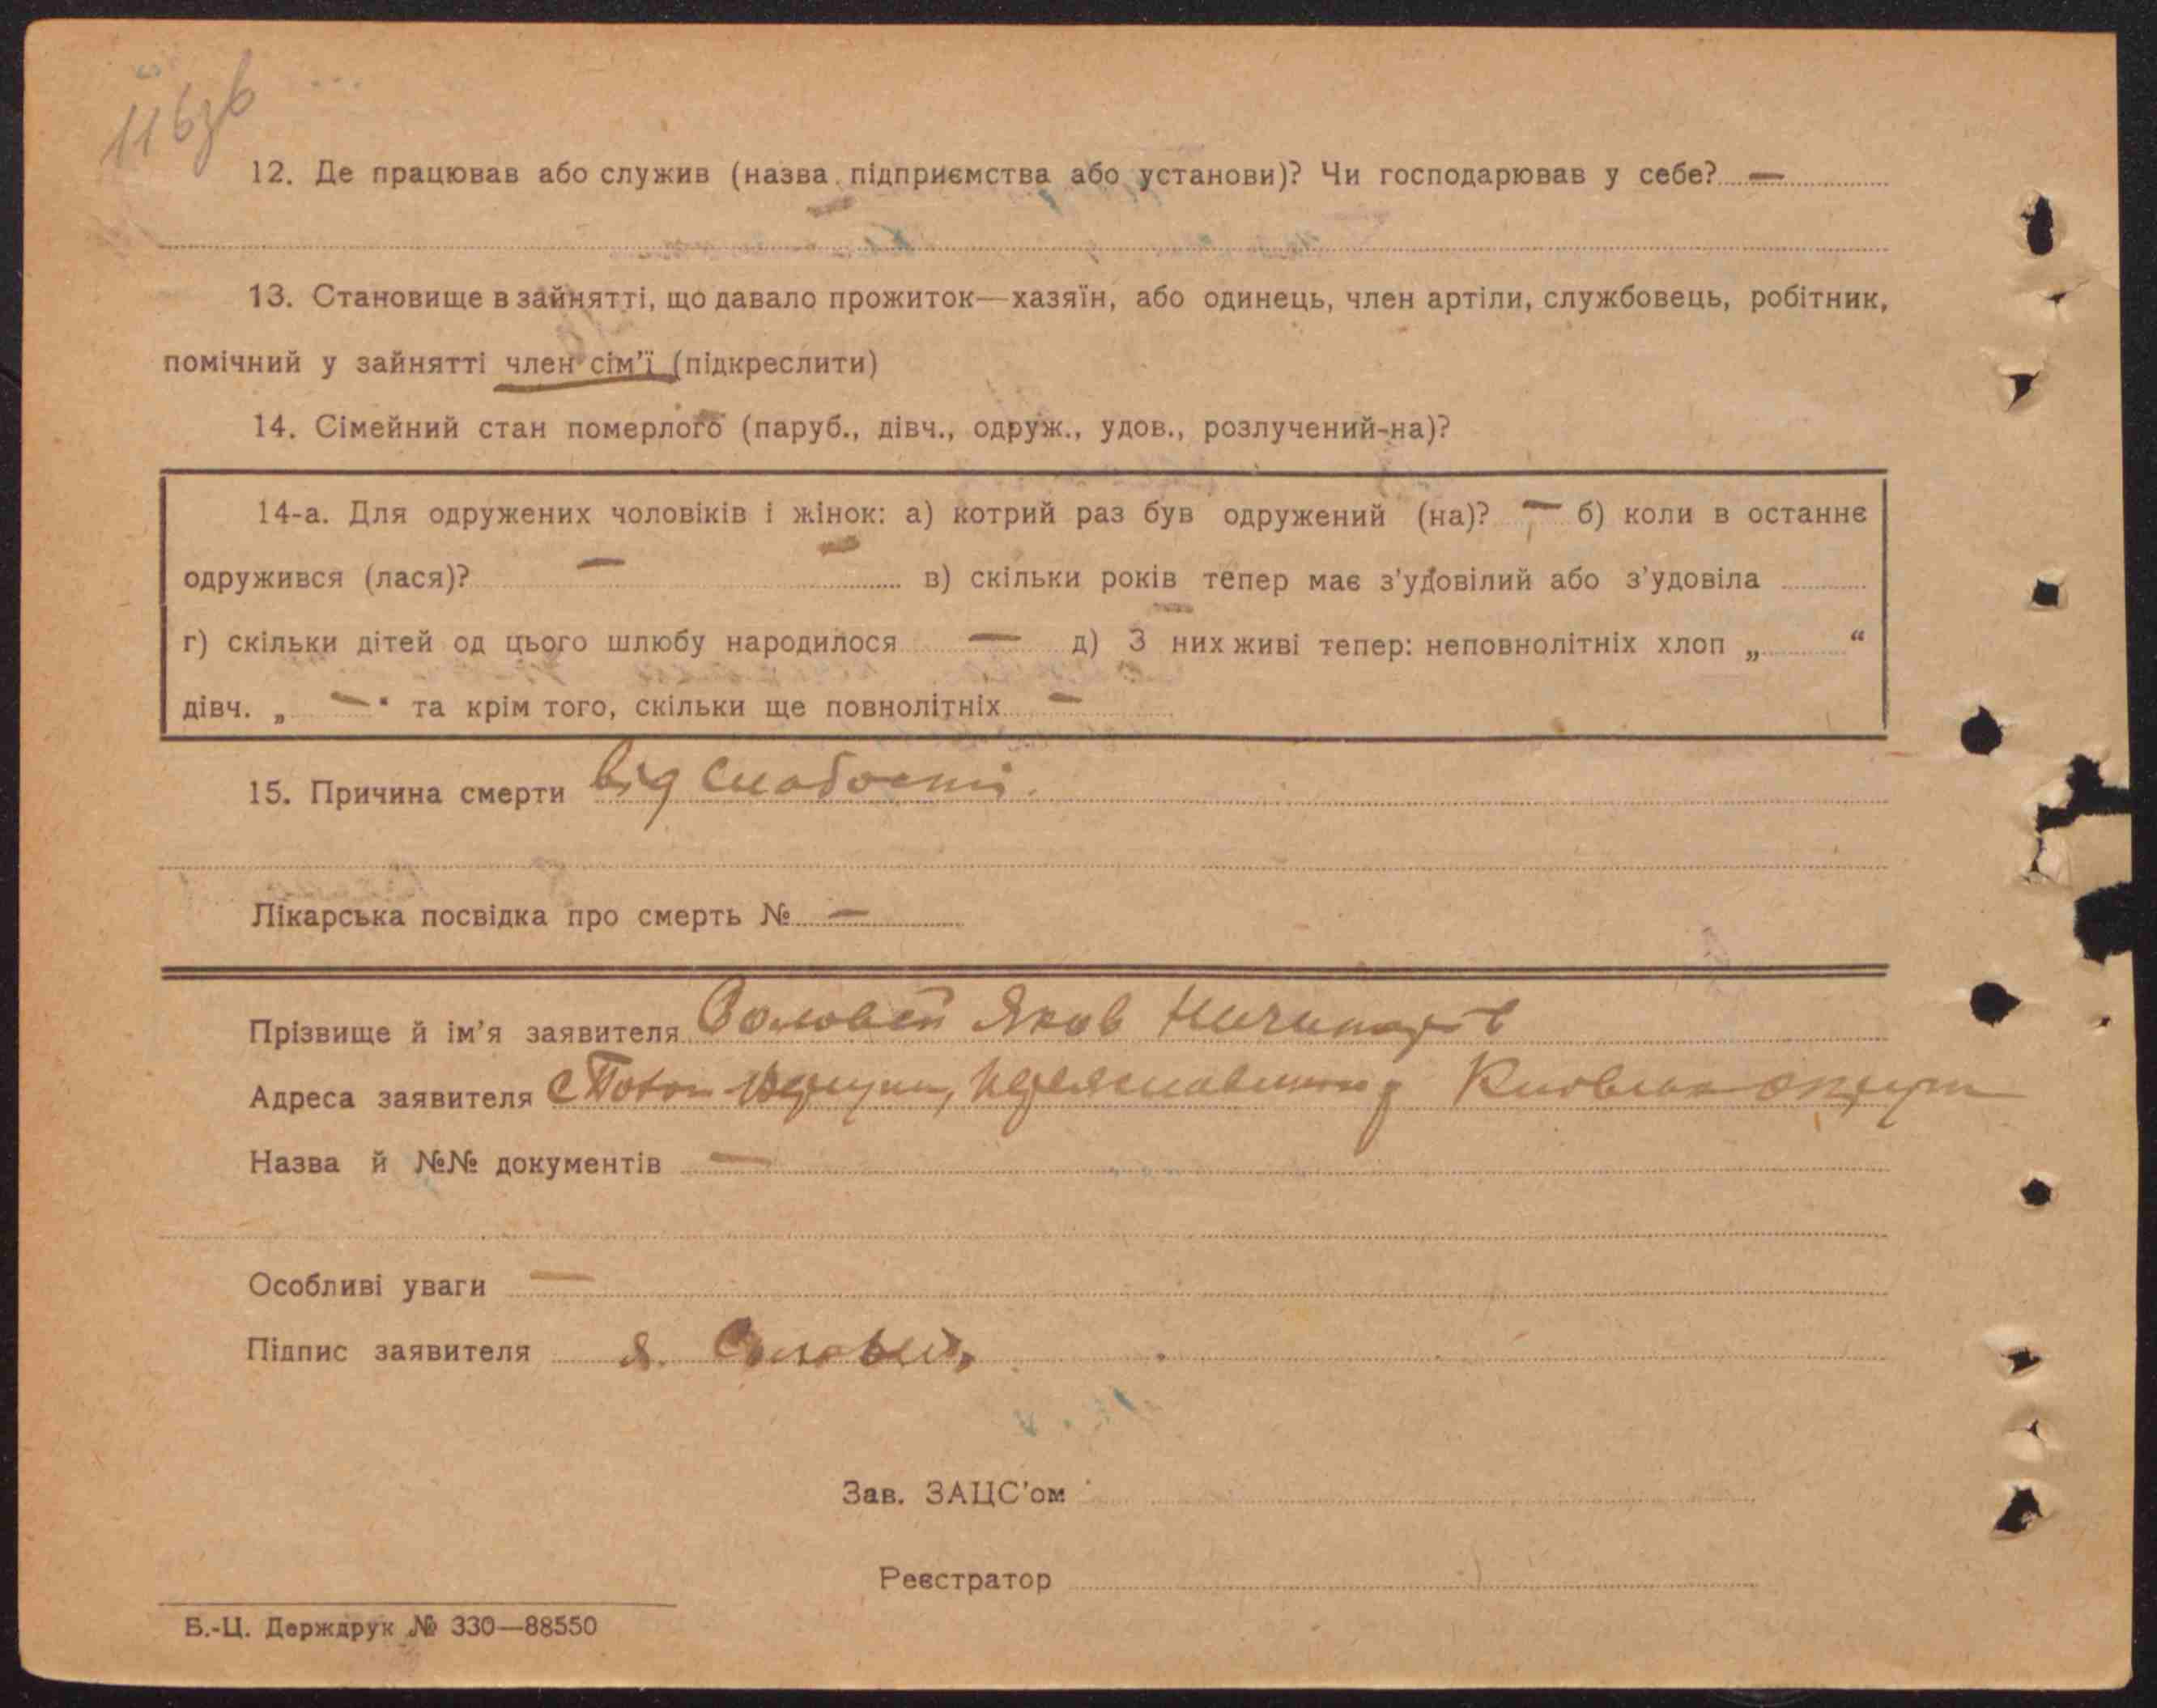 116зв
12. Де працював або служив (назва підприємства або установи)? Чи господарював у себе? —
13. Становище в зайнятті, що давало прожиток—хазяїн, або одинець, член артіли, службовець, робітник,
помічний у зайнятті член сім'ї (підкреслити)
14. Сімейний стан померлого (паруб., дівч., одруж., удов., розлучений-на)?
14-а. Для одружених чоловіків і жінок: а) котрий раз був одружений (на)? — б) коли в останнє
одружився (лася)? — в) скільки років тепер має з'удовілий або з'удовіла
г) скільки дітей од цього шлюбу народилося — д) З них живі тепер: неповнолітніх хлоп „ “
дівч. „ — “ та крім того, скільки ще повнолітніх —
15. Причина смерти від слабості.
Лікарська посвідка про смерть № —
Прізвище й ім'я заявителя Соловей Яков
Адреса заявителя с
Назва й №№ документів —
Особливі уваги —
Підпис заявителя Я. Соловей
Зав. ЗАЦС'ом
Реєстратор
Б.-Ц. Держдрук № 330—88550